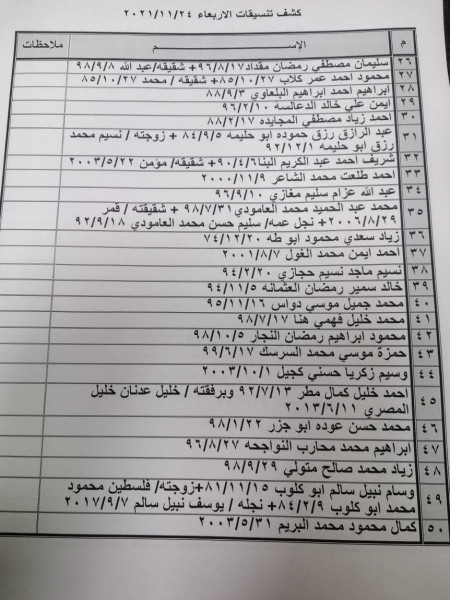 كشف تنسيقات الاربعاء ٢٠٢١/١١/٢٤
م الإســـم ملاحظات
٢٦ سليمان مصطفي رمضان مقداد٩٦/٨/١٧+ شقيقه/عبد الله ٩٨/٩/٨
٢٧ محمود احمد عمر كلاب ٨٥/١٠/٢٧+ شقيقه / محمد ٨٥/١٠/٢٧
٢٨ ابراهيم احمد ابراهيم البلعاوي ٨٨/٩/٣
٢٩ ايمن علي خالد الدعالسه ٩٦/٢/١٠
٣٠ احمد زياد مصطفي المجايده ٨٨/٢/١٧
٣١ عبد الرازق رزق حموده ابو حليمه ٨٤/٩/٥ + زوجته / نسيم محمد
رزق ابو حليمه ٩٢/١٢/١
٣٢ شريف احمد عبد الكريم البنا٩٠/٤/٦+ شقيقه/ مؤمن ٢٠٠٣/٥/٢٢
٣٣ احمد طلعت محمد الشاعر ٢٠٠٠/١١/٩
٣٤ عبد الله عزام سليم مغازي ٩٦/٩/١٠
٣٥ محمد عبد الحميد محمد العامودي ٩٨/٧/٣١ + شقيقته / قمر
٢٠٠٦/٨/٢٩ + نجل عمه/ سليم حسن محمد العامودي ٩٢/٩/١٨
٣٦ زياد سعدي محمود ابو طه ٧٤/١٢/٢٠
٣٧ احمد ايمن محمد الغول ٢٠٠١/٨/٧
٣٨ نسيم ماجد نسيم حجازي ٩٤/٢/٢٠
٣٩ خالد سمير رمضان العثمانه ٩٤/١١/٥
٤٠ محمد جميل موسي دواس ٩٥/١١/١٦
٤١ محمد خليل فهمي هنا ٩٨/٧/١٧
٤٢ محمود ابراهيم رمضان النجار ٩٨/١٠/٥
٤٣ حمزة موسي محمد السرسك ٩٩/٦/١٧
٤٤ وسيم زكريا حسني كحيل ٢٠٠٣/١٠/١
٤٥ احمد خليل كمال مطر ٩٢/٧/١٣ وبرفقته / خليل عدنان خليل
المصري ٢٠١٣/٦/١١
٤٦ محمد حسن عوده ابو جزر ٩٨/١/٢٢
٤٧ ابراهيم محمد محارب النواجحه ٩٦/٨/٢٧
٤٨ زياد محمد صالح متولي ٩٨/٩/٢٩
٤٩ وسام نبيل سالم ابو كلوب ٨١/١١/١٥+زوجته/ فلسطين محمود
محمد ابو كلوب ٨٤/٢/٩+ نجله / يوسف نبيل سالم ٢٠١٧/٩/٧
٥٠ كمال محمود محمد البريم ٢٠٠٣/٥/٣١